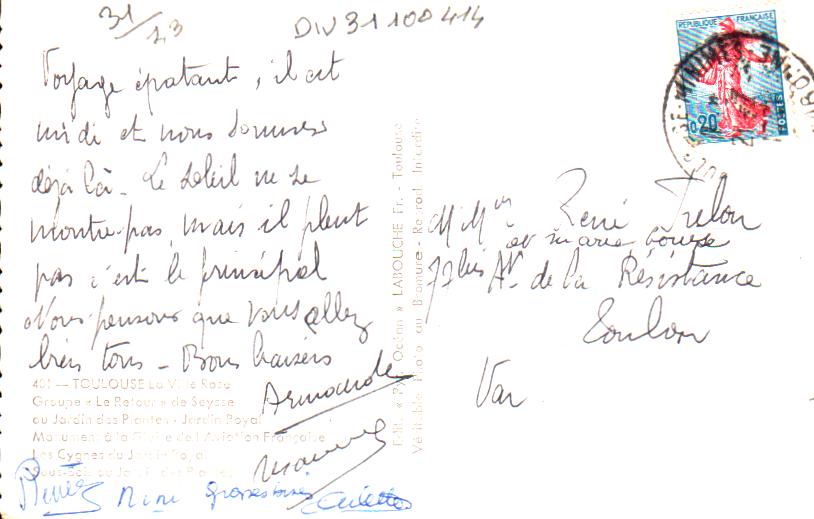 31/23
DIV 31 100 414
Voyage épatant, il est
midi et nous sommes
déjà là. Le soleil ne se
montre pas, mais il pleut
pas c'est le principal
Nous pensons que vous allez
bien tous - Bons baisers
Armande
401 — TOULOUSE La Ville Rose
Groupe « Le Retour » de Seysse
au Jardin des Plantes - Jardin Royal
Monument à la Gloire de l'Aviation Française
Les Cygnes du Jardin Royal
Sous-Bois au Jardin des Plantes
Mimi Grosses bises
Edit. « Pyr. Océan » LABOUCHE Fr. - Toulouse
Véritable Photo au Bromure - Reprod. Interdite
REPUBLIQUE FRANÇAISE
0,20
POSTES
MINIMES
M Mme René
et marie louise
77 bis Av. de la Résistance
Toulon
Var